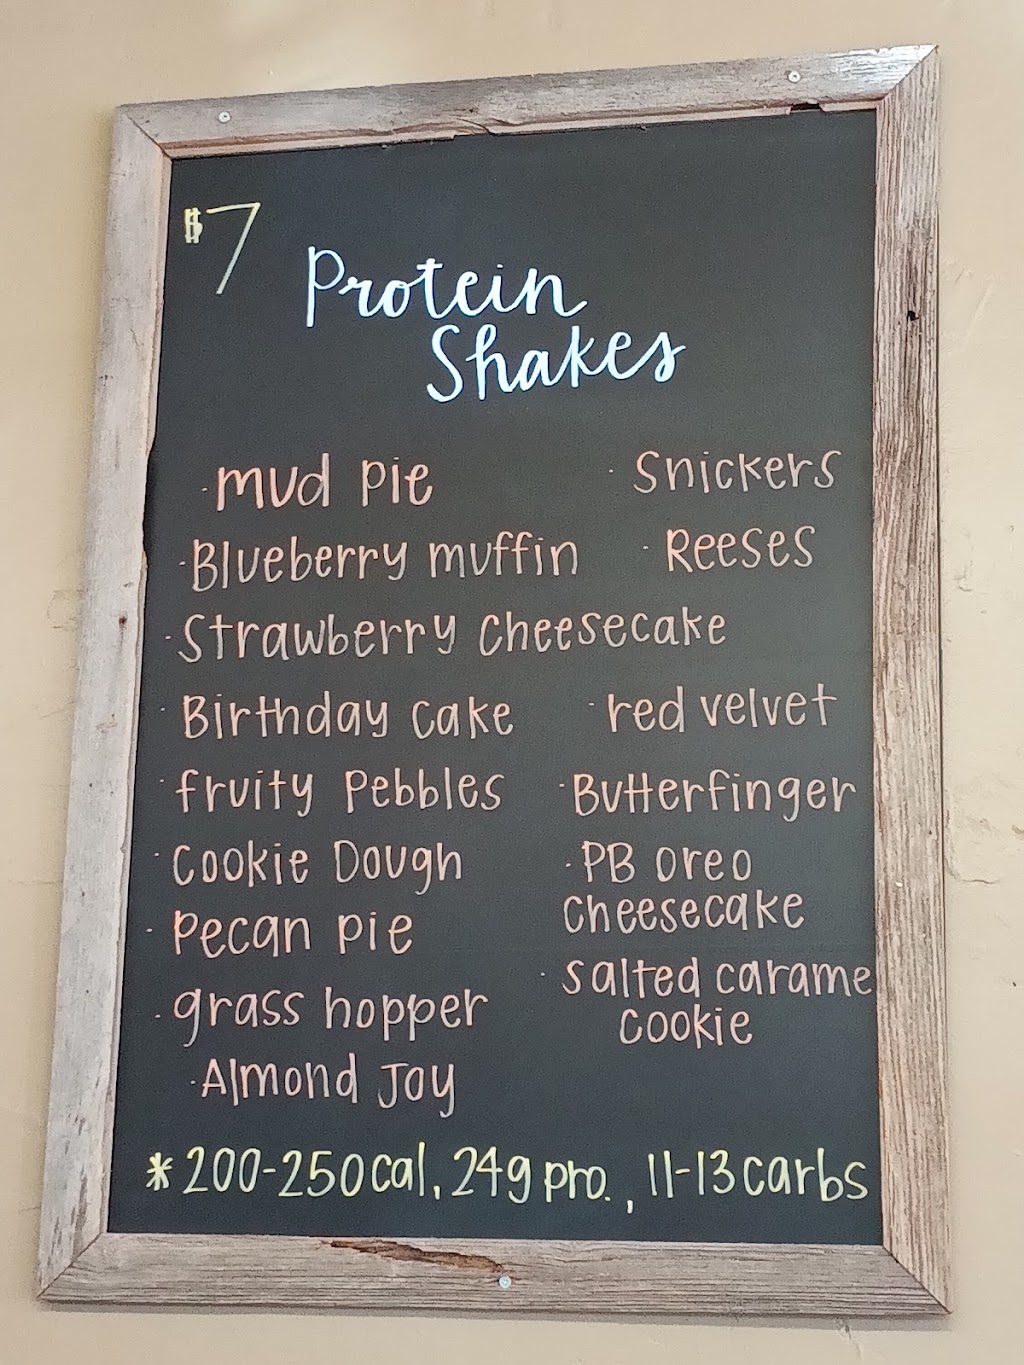 $7
Protein
Shakes
· mud pie
· Snickers
· Blueberry muffin
· Reeses
· Strawberry cheesecake
· Birthday cake
· red velvet
· fruity Pebbles
· Butterfinger
· Cookie Dough
· PB oreo
cheesecake
· Pecan pie
· salted carame
cookie
· grass hopper
· Almond Joy
* 200-250cal, 24g pro., 11-13carbs